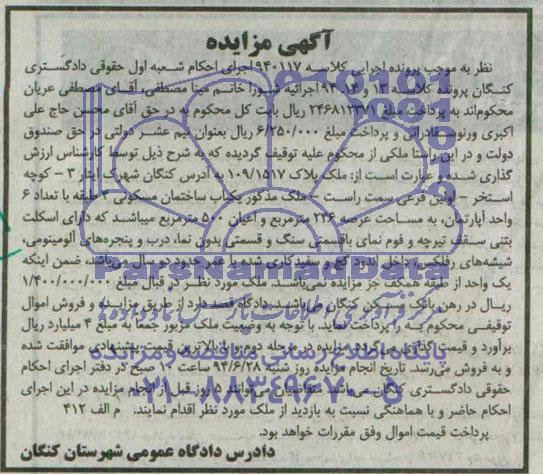 آگهی مزایده
نظر به موجب پرونده اجرایی کلاسه ۹۴۰۱۱۷ اجرای احکام شعبه اول حقوقی دادگستری
کنگان پرونده کلاسه ۱۳ و ۱۴. ۹۴ اجرائیه شورا خانم مینا مصطفی، آقای مصطفی عریان
محکوم‌اند به پرداخت مبلغ ۲۴۶۸۱۲۳۷۱ ریال بابت کل محکوم به در حق آقای محسن حاج علی
اکبری ورنوس فادرانی و پرداخت مبلغ ۶/۲۵۰/۰۰۰ ریال بعنوان نیم عشر دولتی در حق صندوق
دولت و در این راستا ملکی از محکوم علیه توقیف گردیده که به شرح ذیل توسط کارشناس ارزش
گذاری شده و عبارت است از: ملک پلاک ۱۰۹/۱۵۱۷ به آدرس کنگان شهرک ایثار ۳ - کوچه
استخر - اولین فرعی سمت راست - ملک مذکور یکباب ساختمان مسکونی ۳ طبقه با تعداد ۶
واحد آپارتمان، به مساحت عرصه ۲۴۶ مترمربع و اعیان ۵۰۰ مترمربع میباشد که دارای اسکلت
بتنی سقف تیرچه و فوم نمای باقسمتی سنگ و قسمتی بدون نما، درب و پنجره‌های آلومینومی،
شیشه‌های رفلکس، داخل اندود گچ و سفیدکاری شده با عمر حدود دو سال می‌باشد، ضمن اینکه
یک واحد از طبقه همکف جز مزایده نمی‌باشد. ملک مورد نظر در قبال مبلغ ۱/۴۰۰/۰۰۰/۰۰۰
ریال در رهن بانک مسکن کنگان می‌باشد. دادگاه قصد دارد از طریق مزایده و فروش اموال
توقیفی محکوم به را پرداخت نماید. با توجه به وضعیت ملک مزبور جمعاً به مبلغ ۴ میلیارد ریال
برآورد و قیمت گذاری می‌گردد. مزایده در مرحله دوم و با بالاترین قیمت پیشنهادی موافقت شده
و به فروش می‌رسد. تاریخ انجام مزایده روز شنبه ۹۴/۶/۲۸ ساعت ۱۰ صبح در دفتر اجرای احکام
حقوقی دادگستری کنگان می‌باشد. متقاضیان می‌توانند ۵ روز قبل از انجام مزایده در این اجرای
احکام حاضر و با هماهنگی نسبت به بازدید از ملک مورد نظر اقدام نمایند. م الف ۴۱۲
پرداخت قیمت اموال وفق مقررات خواهد بود.
دادرس دادگاه عمومی شهرستان کنگان
ParsNamadData
پایگاه اطلاع رسانی مناقصه و مزایده
۰۲۱-۸۸۳۴۹۶۷۰-۵